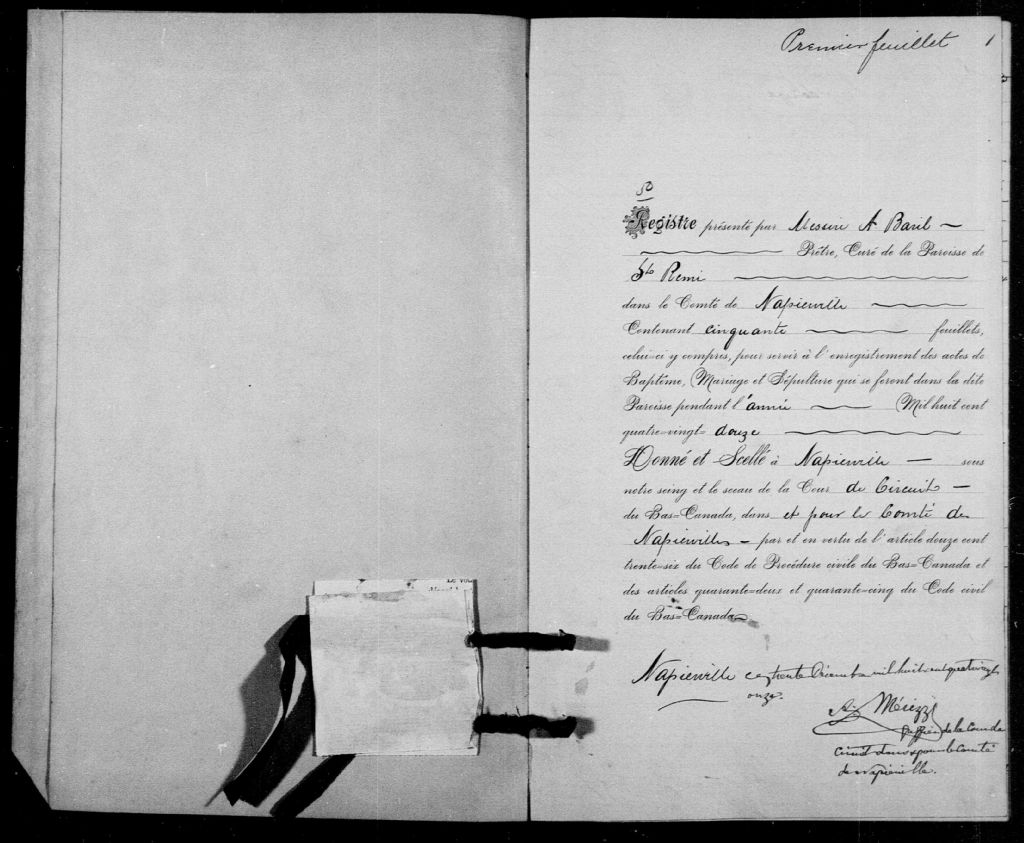 Premier feuillet 1
50
Registre présenté par Messire A Baril
Prêtre, Curé de la Paroisse de
St Remi
dans le Comté de Napierville
Contenant cinquante feuillets,
celui-ci y compris, pour servir à l'enregistrement des actes de
Baptême, Mariage et Sépulture qui se feront dans la dite
Paroisse pendant l'année Mil huit cent
quatre-vingt- douze
Donné et Scellé à Napierville sous
notre seing et le sceau de la Cour de Circuit
du Bas=Canada, dans et pour le Comté de
Napierville par et en vertu de l'article douze cent
trente=six du Code de Procédure civile du Bas=Canada et
des articles quarante=deux et quarante=cinq du Code civil
du Bas=Canada
Napierville ce trente Décembre mil huit cent quatre vingt
onze.
A.
Greffier de la Cour de
circuit dans & pour le Comté
de Napierville.
LE